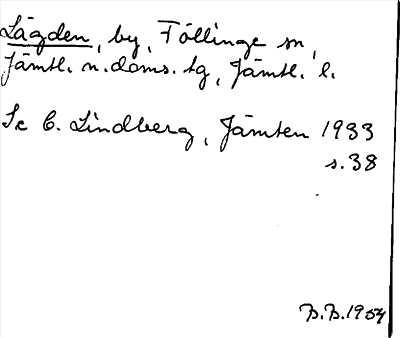 Lägden, by, Föllinge sn,
Jämtl. n. doms. tg, Jämtl. l.
Se C. Lindberg, Jämten 1933
s. 38
B.B. 1954